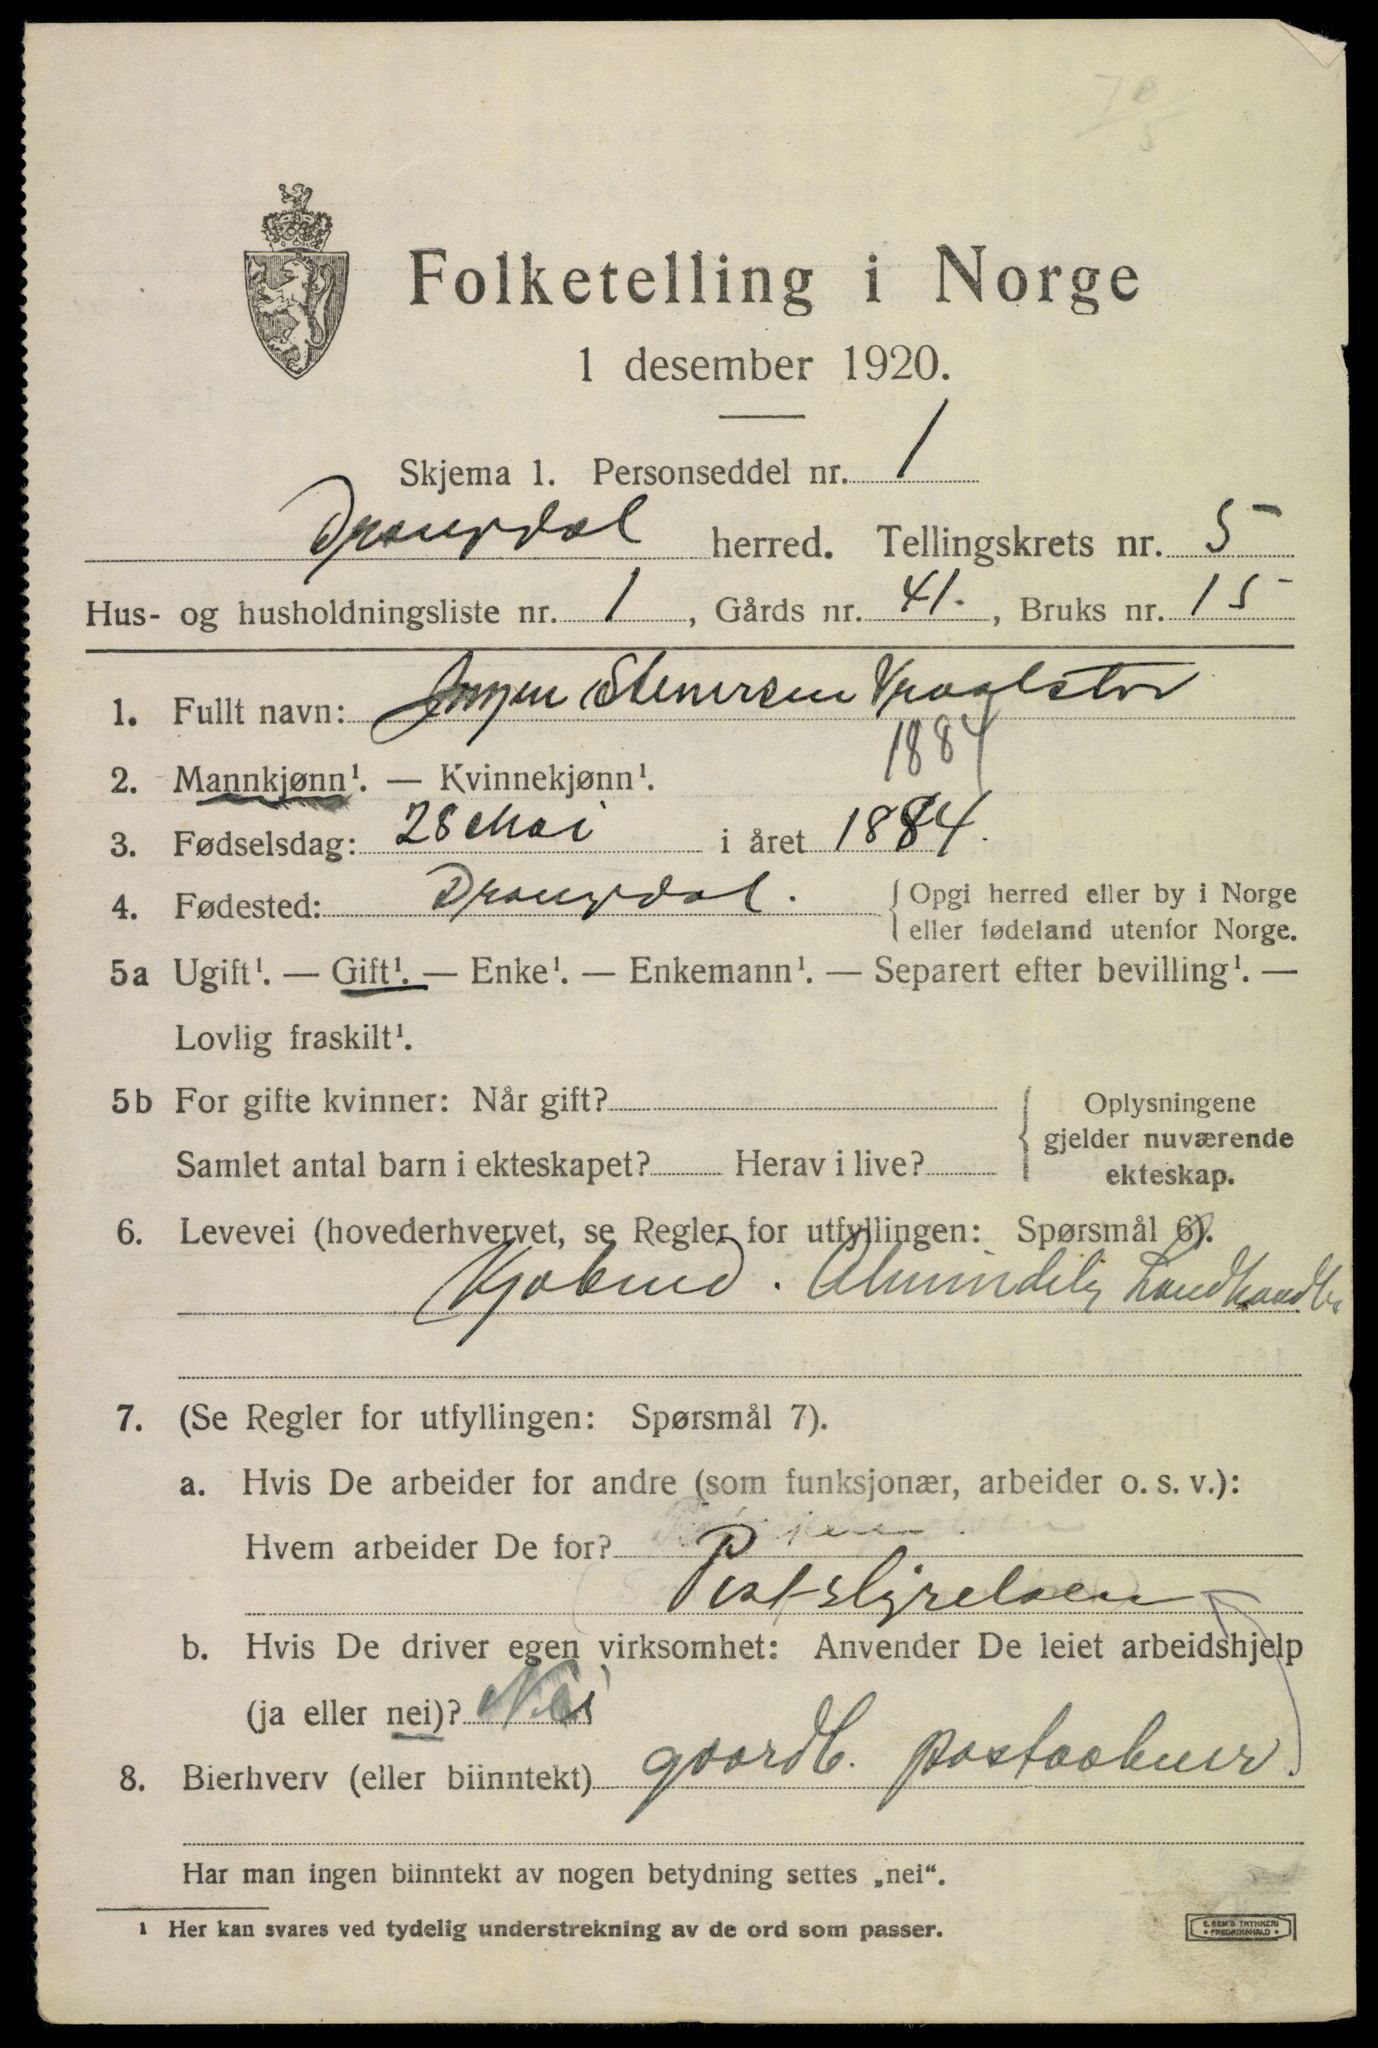 Folketelling i Norge
1 desember 1920.
Skjema 1. Personseddel nr. 1
Drangedal herred. Tellingskrets nr. 5
Hus- og husholdningsliste nr. 1, Gårds nr. 41., Bruks nr. 15
1. Fullt navn: Jørgen Stenersen Vraalstad
1884
2. Mannkjønn¹. — Kvinnekjønn¹.
3. Fødselsdag: 28 Mai i året 1884.
4. Fødested: Drangedal. { Opgi herred eller by i Norge
eller fødeland utenfor Norge.
5a Ugift¹. — Gift¹. — Enke¹. — Enkemann¹. — Separert efter bevilling¹. —
Lovlig fraskilt¹.
5b For gifte kvinner: Når gift? { Oplysningene
gjelder nuværende
Samlet antal barn i ekteskapet? Herav i live?
ekteskap.
6. Levevei (hovederhvervet, se Regler for utfyllingen: Spørsmål 6).
Almindelig Landhandle
7. (Se Regler for utfyllingen: Spørsmål 7).
a. Hvis De arbeider for andre (som funksjonær, arbeider o. s. v.):
Hvem arbeider De for?
Poststyrelsen
b. Hvis De driver egen virksomhet: Anvender De leiet arbeidshjelp
(ja eller nei)? Nei
8. Bierhverv (eller biinntekt) gaardb. postaabner.
Har man ingen biinntekt av nogen betydning settes „nei“.
¹ Her kan svares ved tydelig understrekning av de ord som passer.
E. SEM'S TRYKKERI
• FREDRIKSHALD •